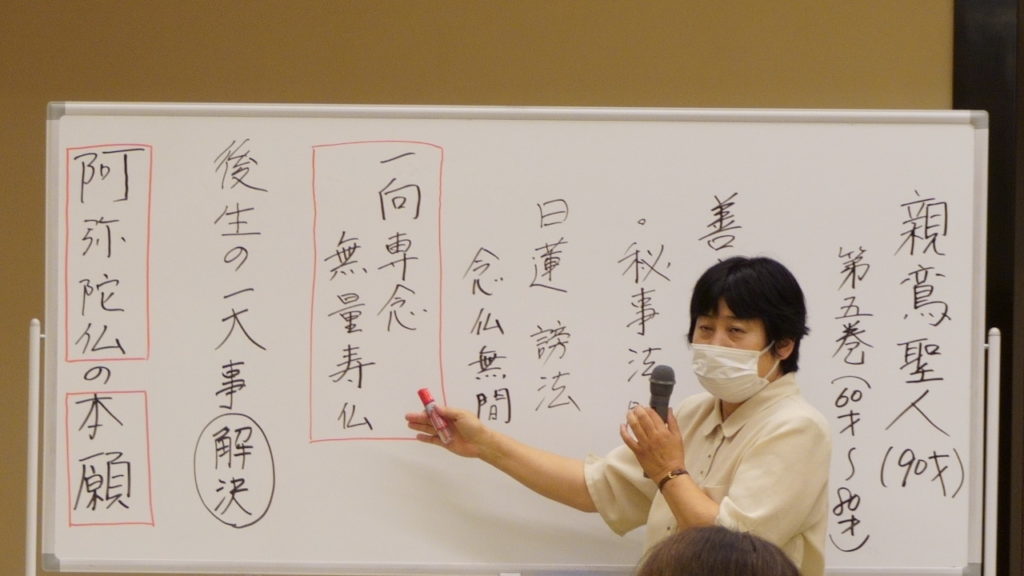 親鸞聖人(90才)
第五巻(60才~80才)
善
・秘事法
日蓮 謗法
念仏無間
一向専念
無量寿仏
後生の一大事解決
阿弥陀仏の本願